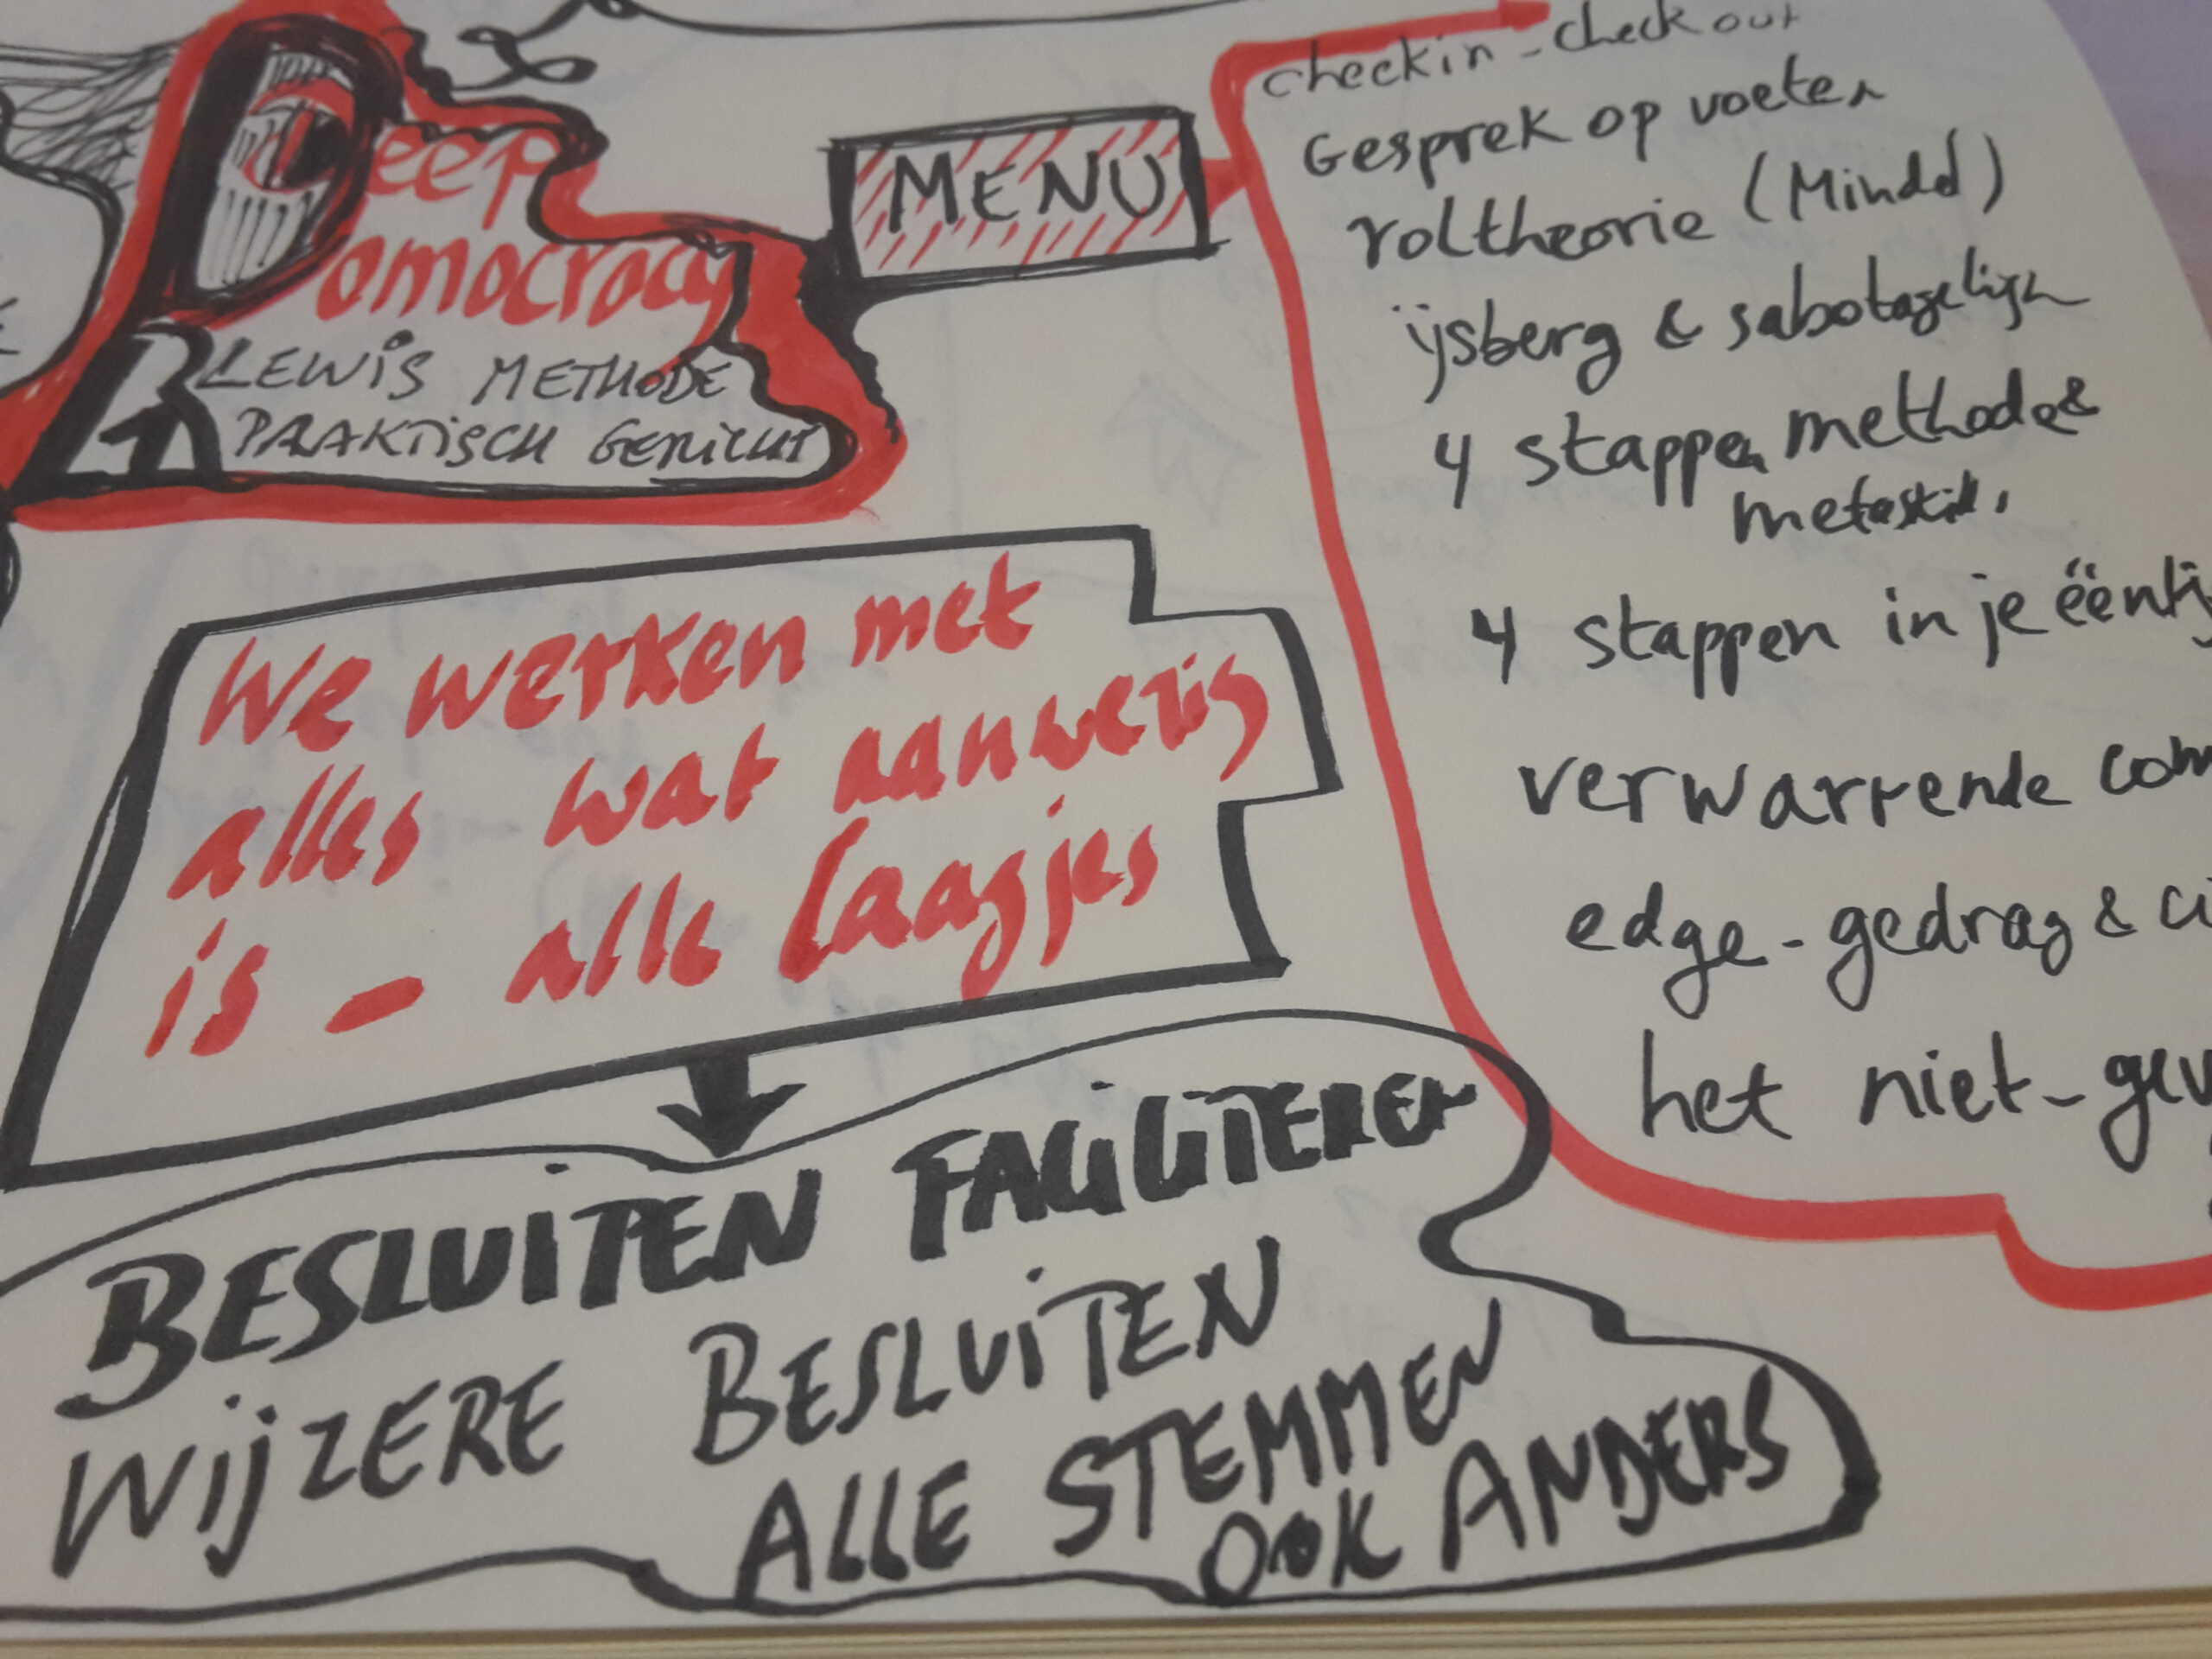 Deep
Domocracy
LEWIS METHODE
PRAKTISCH GERICHT
MENU
checkin - check out
Gesprek op voeten
roltheorie (Mindd)
ijsberg & sabotagelijn
4 stappen methode &
metaskills
4 stappen in je ééntj
verwarrende com
edge - gedrag & ci
het niet - gev
We werken met
alles wat aanwezig
is - alle laagjes
BESLUITEN FACILITEREN
WIJZERE BESLUITEN
ALLE STEMMEN
OOK ANDERS